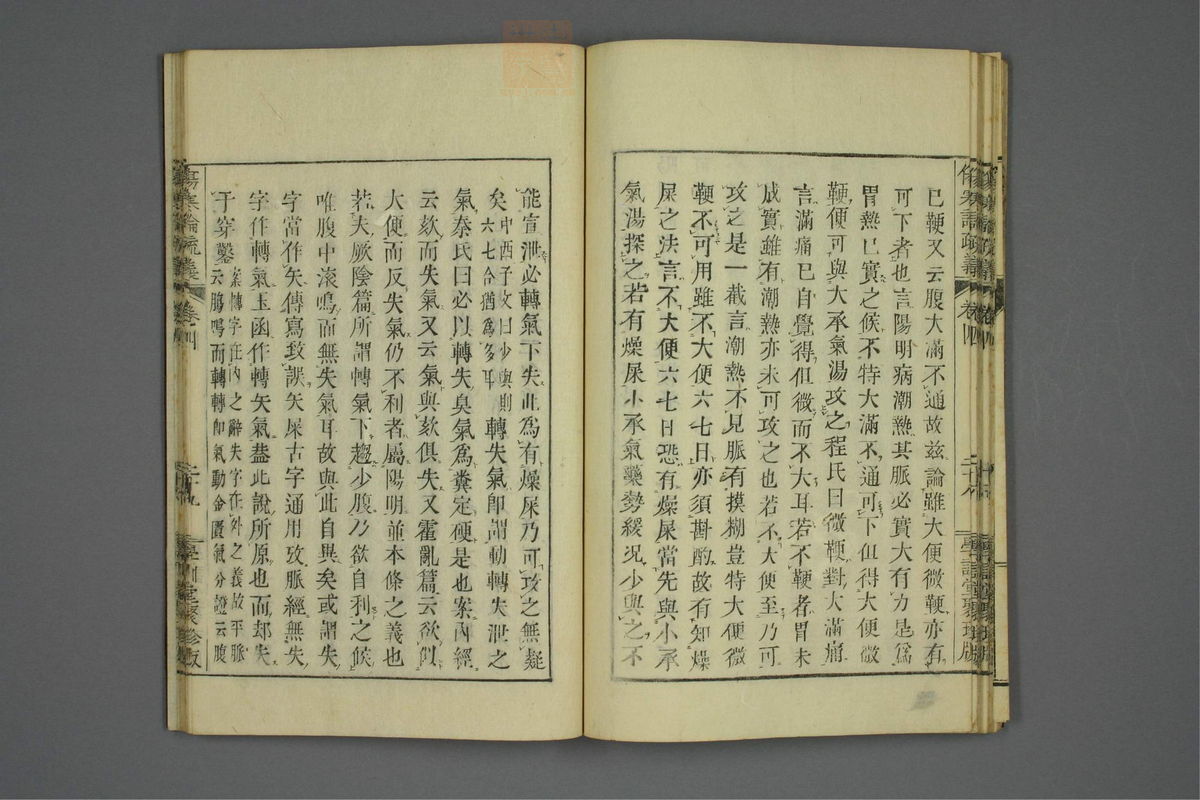 已鞕又云腹大滿不通故兹論雖大便微鞕亦有
可下者也言陽明病潮熱其脈必實大有力是爲
胃熱已實之候不特大滿不通可下但得大便微
鞕便可與大承氣湯攻之程氏曰微鞕對大滿痛
言滿痛已自覺得但微而不大耳若不鞕者胃未
成實雖有潮熱亦未可攻之也若不大便至乃可
攻之是一截言潮熱不見脈有摸糊豈特大便微
鞕不可用雖不大便六七日亦須斟酌故有知燥
屎之法言不大便六七日恐有燥屎當先與小承
氣湯探之若有燥屎小承氣藥勢緩况少與之不
能宣泄必轉氣下失此爲有燥屎乃可攻之無疑
矣中西子文曰少與則六七合猶爲多耳轉失氣卽謂動轉失泄之
氣秦氏曰必以轉失臭氣爲糞定硬是也案內經
云欬而失氣又云氣與欬俱失又霍亂篇云欲似
大便而反失氣仍不利者屬陽明並本條之義也
若夫厥陰篇所謂轉氣下趨少腹乃欲自利之候
唯腹中滚鳴而無失氣耳故與此自異矣或謂失
字當作矢傳寫致誤矢屎古字通用攷脈經無失
字作轉氣玉函作轉矢氣葢此說所原也而却失
于穿鑿案轉字在內之辭失字在外之義故平脈云腸鳴而轉轉卽氣動金匱氣分證云腹
傷寒論疏義
卷四